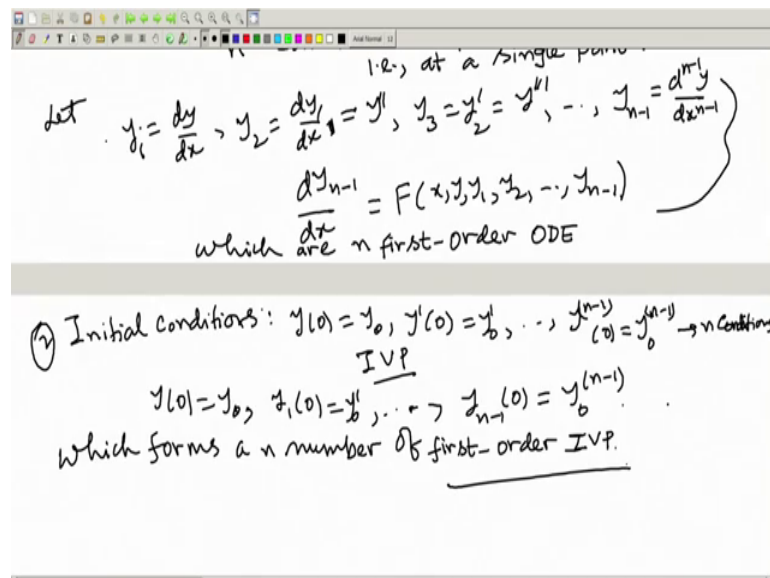 i.e., at a single point.
Let y₁ = dy/dx, y₂ = dy₁/dx = y'', y₃ = y₂' = y''', ..., yₙ₋₁ = dⁿ⁻¹y/dxⁿ⁻¹
dyₙ₋₁/dx = F(x, y, y₁, y₂, ..., yₙ₋₁)
which are n first-order ODE
② Initial conditions: y(0) = y₀, y'(0) = y₀', ..., y⁽ⁿ⁻¹⁾(0) = y₀⁽ⁿ⁻¹⁾ → n Conditions
IVP
y(0) = y₀, y₁(0) = y₀', ..., yₙ₋₁(0) = y₀⁽ⁿ⁻¹⁾.
which forms a n number of first-order IVP.